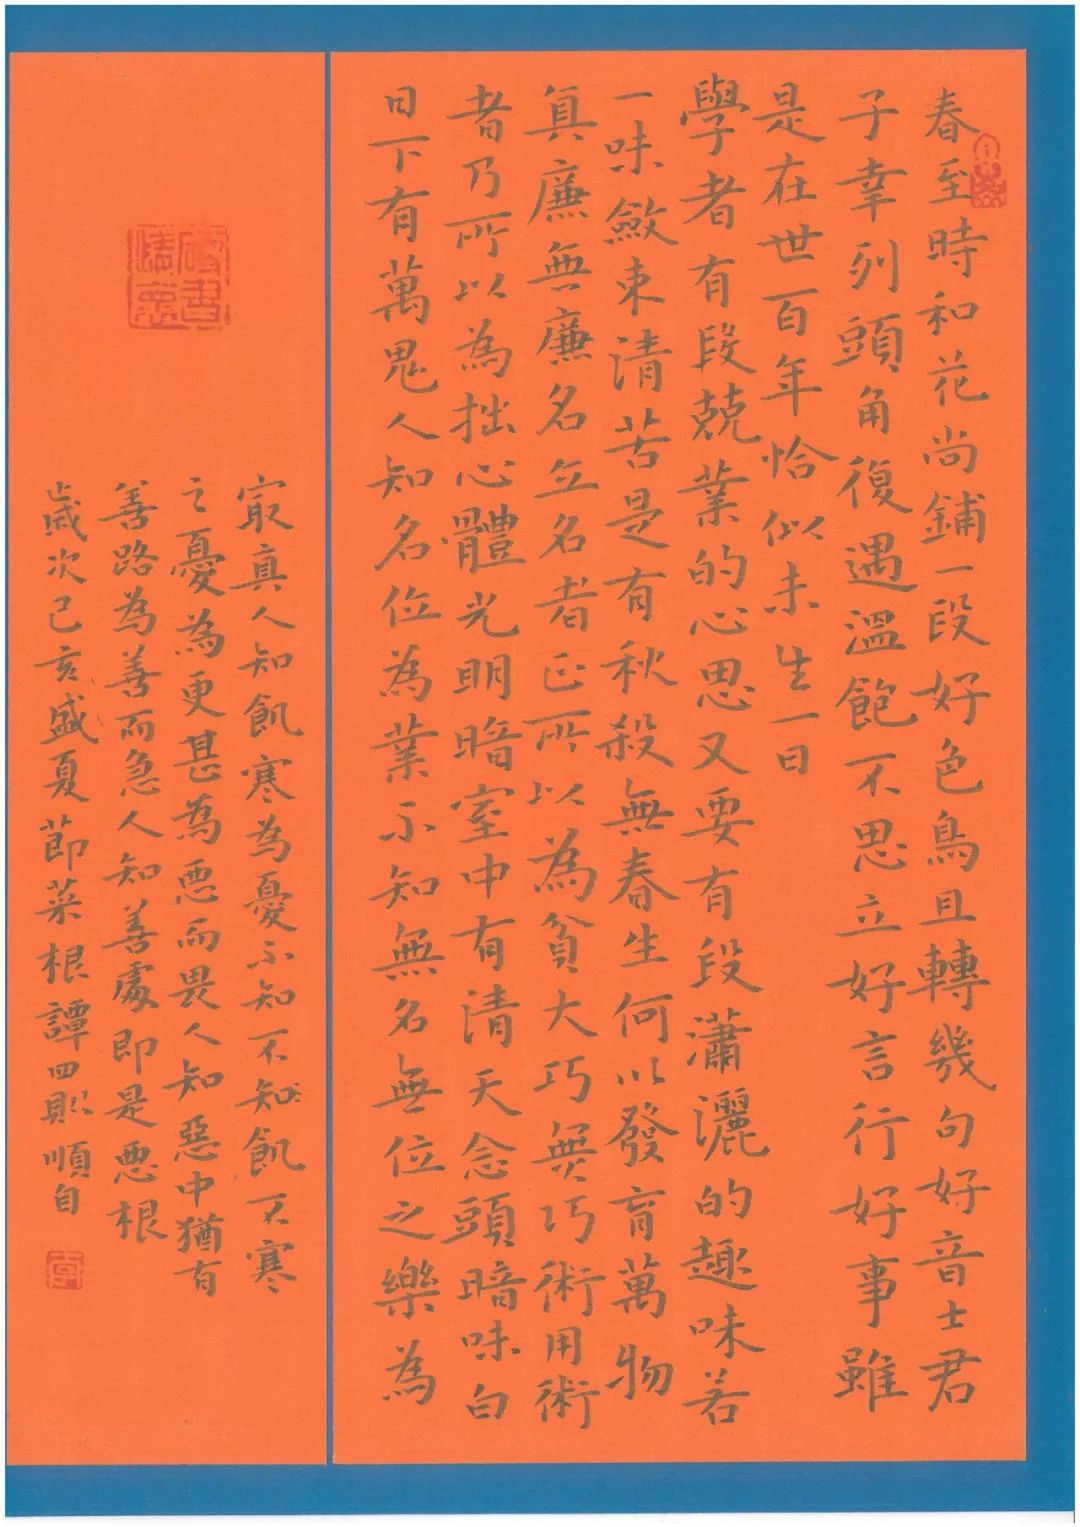 春至時和花尚鋪一段好色鳥且轉幾句好音士君
子幸列頭角復遇溫飽不思立好言行好事雖
是在世百年恰似未生一日
學者有段兢業的心思又要有段瀟灑的趣味若
一味斂束清苦是有秋殺無春生何以發育萬物
真廉無廉名立名者正所以為貧大巧無巧術用術
者乃所以為拙心體光明暗室中有清天念頭暗味白
日下有萬鬼人知名位為業不知無名無位之樂為
最真人知飢寒為憂不知不知飢不寒
之憂為更甚為惡而畏人知惡中猶有
善路為善而急人知善處即是惡根
歲次己亥盛夏節菜根譚四則順自